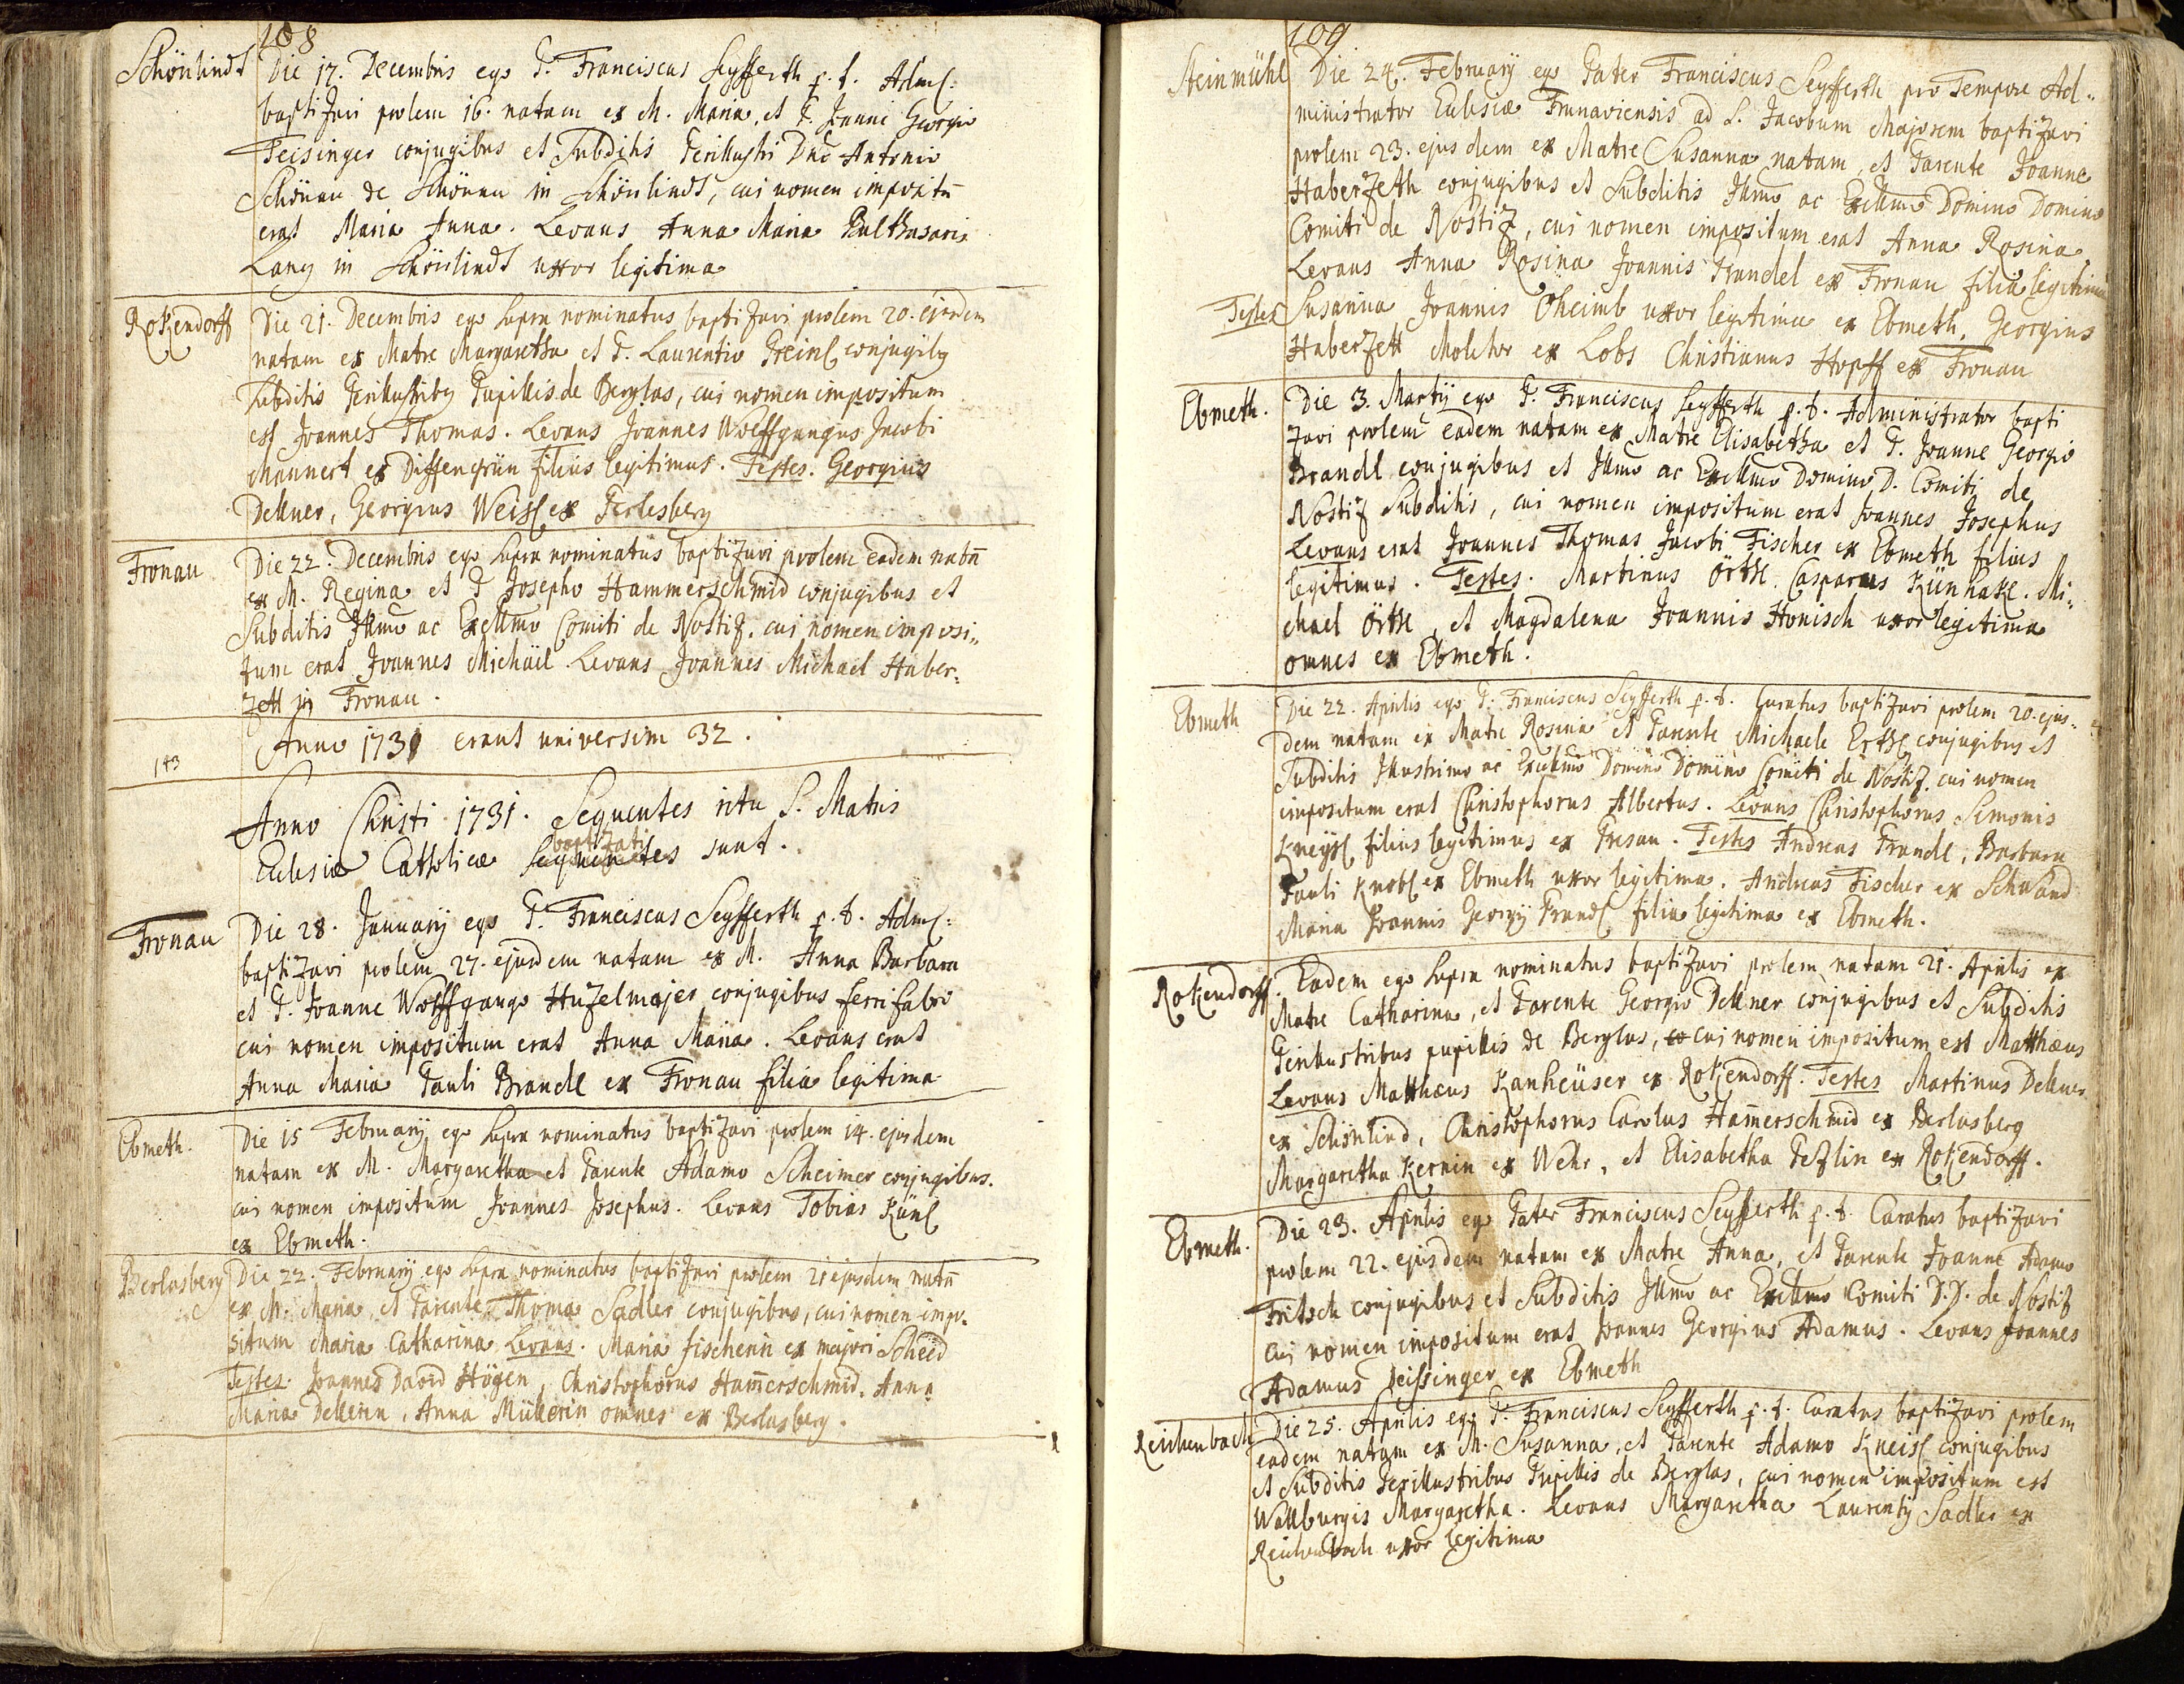 108
Schönlindt
Die 17. Decembris ego P. Franciscus Seyfferth p. t. Adm:
baptizavi prolem 16. natam ex M. Maria, et P. Joanne Georgio
Teisinger conjugibus et Subditis Perillustri Dno Antonio
Schönau de Schönau in Schönlindt, cui nomen impositū
erat Maria Anna. Levans Anna Maria Balthasaris
Lang in Schönlindt uxor legitima
Rokendorff
Die 21. Decembris ego supra nominatus baptizavi prolem 20. ejusdem
natam ex Matre Margaretha et P. Laurentio conjugibg
Subditis Perillustribg Pupillis de Berglas, cui nomen impositum
est Joannes Thomas. Levans Joannes Wolffgangus Jacobi
Mannert ex Dissengrün filius legitimus. Testes. Georgius
Dellner, Georgius Weiss ex Perlesberg
Fronau
Die 22. Decembris ego supra nominatus baptizavi prolem eadem natā
ex M. Regina et P Josepho Hammerschmid conjugibus et
Subditis Illmo ac Excellmo Comiti de Nostiz. cui nomen imposi„
tum erat Joannes Michäel Levans Joannes Michael Haber„
zett in Fronau.
Anno 1731 erant universim 32.
143
Anno Christi 1731. Sequentes ritu S. Matris
baptizati
Eclesiæ Catholicæ sunt.
Fronau
Die 28. Januarij ego P. Franciscus Seyfferth p. t. Adm:
baptizavi prolem 27. ejusdem natam ex M. Anna Barbara
et P. Joanne Wolffgango Huzelmajer conjugibus ferrifabro
cui nomen impositum erat Anna Maria. Levans erat
Anna Maria Pauli Brandl ex Fronau filia legitima
Ebmeth.
Die 15 Februarij ego supra nominatus baptizavi prolem 14. ejusdem
natam ex M. Margaretha et Parente Adamo Scheimer conjugibus.
cui nomen impositum Joannes Josephus. Levans Tobias Künl
ex Ebmeth.
Berlasberg
Die 22. Februarij ego supra nominatus baptizavi prolem 21 ejusdem natā
ex M. Maria et Parente Thoma Sadler conjugibus, cui nomen impo„
situm Maria Catharina Levans. Maria fischerin ex majori Scheid
Testes. Joannes David Högen, Christophorus Ham̄erschmid, Anna
Maria Dellerin, Anna Müllerin omnes ex Berlasberg.
109
Steinmühl
Die 24. Februarij ego Pater Franciscus Seyfferth pro Tempore Ad„
ministrator Eclesiæ Frunaviensis ad S. Jacobum Majorem baptizavi
prolem 23. ejusdem ex Matre Susanna natam, et Parente Joanne
Haberzeth conjugibus et Subditis Illmo ac Excellmo Domino Domino
Comiti de Nostiz, cui nomen impositum erat Anna Rosina
Levans Anna Rosina Joannis Prandel ex Fronau filia legitima
Testes Susanna Joannis Öheimb uxor legitima ex Ebmeth, Georgius
Haberzett Molitor ex Lobs Christianus Hopff ex Fronau
Ebmeth.
Die 3. Martij ego P. Franciscus Seyfferth p. t. Administrator bapti
zavi prolem eadem natam ex Matre Elisabetha et P. Joanne Georgio
Brandl conjugibus et Illmo ac Excellmo Domino D. Comiti de
Nostiz Subditis, cui nomen impositum erat Joannes Josephus
Levans erat Joannes Thomas Jacobi Fischer ex Ebmeth filius
legitimus. Testes. Martinus Örtl. Casparus Künhakl. Mi„
chael Örtl, et Magdalena Joannis Honisch uxor legitima
omnes ex Ebmeth.
Ebmeth
Die 22. Aprilis ego P. Franciscus Seyfferth p. t. Curatus baptizavi prolem 20. ejus„
dem natam ex Matre Rosina et Parente Michaele Ertl conjugibus et
Subditis Illustrimo ac Excellmo Domino Domino Comiti de Nostiz. cui nomen
impositum erat Christophorus Albertus. Levans Christophorus Simonis
Kneysl filius legitimus ex Presau. Testes Andreas Prandl, Barbara
Pauli Knobl ex Ebmeth uxor legitima. Andreas Fischer ex Schwand
Maria Joannis Georgij Prandl filia legitima ex Ebmeth.
Rokendorff.
Eadem ego supra nominatus baptizavi prolem natam 21. Aprilis ex
Matre Catharina, et Parente Georgio Dellner conjugibus et Subditis
Perillustribus pupillis de Berglas, cui nomen impositum est Matthæus
Levans Matthæus Kanheüser ex Rokendorff. Testes Martinus Dellner
ex Schönlind, Christophorus Carolus Ham̄erschmid ex Berlasberg
Margaretha Kernin ex Wehr, et Elisabetha Pezlin ex Rokendorff.
Ebmeth.
Die 23. Aprilis ego Pater Franciscus Seyfferth p. t. Curatus baptizavi
prolem 22. ejusdem natam ex Matre Anna, et Parente Joanne Adamo
Fritsch conjugibus et Subditis Illmo ac Excellmo Comiti D.D. de Nostiz
cui nomen impositum erat Joannes Georgius Adamus. Levans Joannes
Adamus Deissinger ex Ebmeth
Reichenbach
Die 25. Aprilis ego P. Franciscus Seyfferth p. t. Curatus baptizavi prolem
eadem natam ex M. Susanna, et Parente Adamo Kneisl conjugibus
et Subditis Perillustribus Pupillis de Berglas, cui nomen impositum est
Wallburgis Margaretha. Levans Margaretha Laurentij Sadler ex
Reichenbach uxor legitima